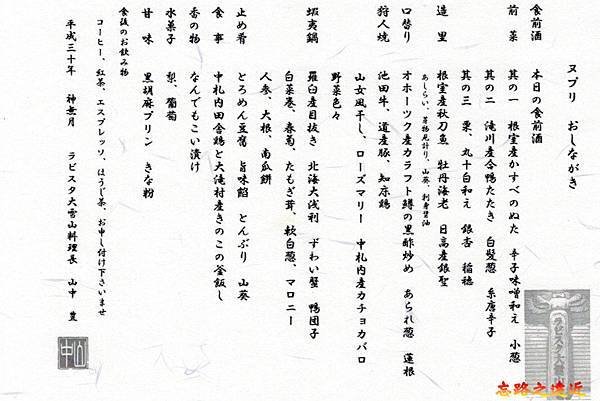 ヌプリ　おしながき
食前酒　本日の食前酒
前菜　其の一　根室産かすべのぬた　辛子味噌和え　小葱
其の二　滝川産合鴨たたき　白髪葱　糸唐辛子
其の三　栗、丸十白和え　銀杏　稲穂
造里　根室産秋刀魚　牡丹海老　日高産銀聖
あしらい、芽物見計り、山葵、刺身醤油
口替り　オホーツク産カラフト鱒の黒酢炒め　あられ葱　蓮根
狩人焼　池田牛、道産豚、知床鶏
山女風干し、ローズマリー　中札内産カチョカバロ
野菜色々
蝦夷鍋　羅臼産目抜き　北海大浅利　ずわい蟹　鴨団子
白菜巻、春菊、たもぎ茸、軟白葱、マロニー
人参、大根、南瓜餅
止め肴　とろめん豆腐　旨味餡　とんぶり　山葵
食事　中札内田舎鶏と大滝村産きのこの釜飯し
香の物　なんでもこい漬け
水菓子　梨、葡萄
甘味　黒胡麻プリン　きな粉
食後のお飲み物
コーヒー、紅茶、エスプレッソ、ほうじ茶、お申し付け下さいませ
平成三十年　神無月　ラビスタ大雪山料理長　山中　豊
山中
ラビスタ大雪山
忘路之遠近